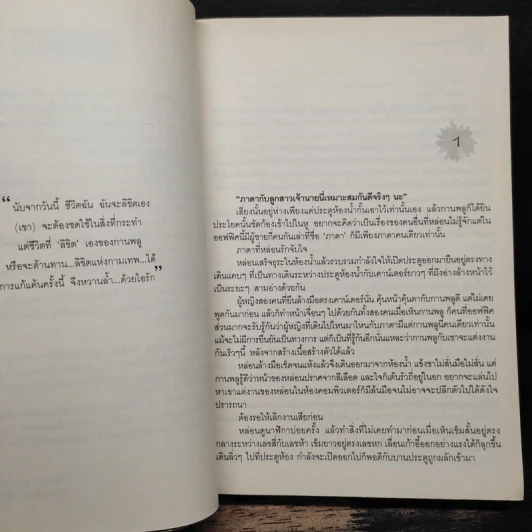 “ นับจากวันนี้ ชีวิตฉัน ฉันจะลิขิตเอง
(เขา) จะต้องชดใช้ในสิ่งที่กระทำ
แต่ชีวิตที่ ‘ลิขิต’ เองของกานพลู
หรือจะต้านทาน...ลิขิตแห่งกามเทพ...ได้
การแก้แค้นครั้งนี้ จึงหวานล้ำ...ด้วยไอรัก ”
1
"ภาดากับลูกสาวเจ้านายนี่เหมาะสมกันดีจริงๆ นะ"
เสียงนั้นอยู่ห่างเพียงแค่ประตูห้องน้ำกั้นเอาไว้เท่านั้นเอง แล้วกานพลูก็ได้ยิน
ประโยคนั้นชัดก้องเข้าไปในหู อยากจะคิดว่าเป็นเรื่องของคนอื่นที่หล่อนไม่รู้จักแต่ใน
ออฟฟิศนี้มีผู้ชายกี่คนกันเล่าที่ชื่อ 'ภาดา' ก็มีเพียงภาดาคนเดียวเท่านั้น
ภาดาที่หล่อนรักจับใจ
หล่อนเสร็จธุระในห้องน้ำแล้วรวบรวมกำลังใจให้เปิดประตูออกมายืนอยู่ตรงทาง
เดินแคบๆ ที่เป็นทางเดินระหว่างประตูห้องน้ำกับเคาน์เตอร์ยาวๆ ที่มีอ่างล้างหน้าไว้
เป็นระยะๆ สามอ่างด้วยกัน
ผู้หญิงสองคนที่ยืนล้างมือตรงเคาน์เตอร์นั่น คุ้นหน้าคุ้นตากับกานพลูดี แต่ไม่เคย
พูดกันมาก่อน แล้วก็ทำหน้าเจื่อนๆ ไปด้วยกันทั้งสองคนเมื่อเห็นกานพลู ก็คนที่ออฟฟิศ
ส่วนมากจะรับรู้กันว่าผู้หญิงที่เดินไปไหนมาไหนกับภาดามีแต่กานพลูนี่คนเดียวเท่านั้น
แม้จะไม่มีการยืนยันเป็นทางการ แต่ก็เป็นที่รู้กันอีกนั่นแหละว่ากานพลูกับเขาจะแต่งงาน
กันเร็วๆนี้ หลังจากสร้างเนื้อสร้างตัวได้แล้ว
หล่อนล้างมือเช็ดจนแห้งแล้วจึงเดินออกมาจากห้องน้ำ แข้งขาไม่สั่น แต่
กานพลูรู้ดีว่าหน้าของหล่อนปราศจากสีเลือด และใจก็เต้นรัวถี่อยู่ในอก อยากจะแผ่นไป
หาเขาแต่งานของหล่อนในห้องคอมพิวเตอร์ก็มีล้นมือจนไม่อาจจะปลีกตัวไปได้ดังใจ
ปรารถนา
ต้องรอให้เลิกงานเสียก่อน
หล่อนดูนาฬิกาบ่อยครั้ง แล้วทำสิ่งที่ไม่เคยทำมาก่อนเมื่อเห็นเข็มสั้นอยู่ตรง
กลางระหว่างเลขสี่กับเลขห้า เข็มยาวอยู่ตรงเลขหก เลื่อนเก้าอี้ออกอย่างแรงได้ก็ลุกขึ้น
เดินลิ่วๆ ไปที่ประตูห้อง กำลังจะเปิดออกไปก็พอดีกับบานประตูถูกผลักเข้ามา